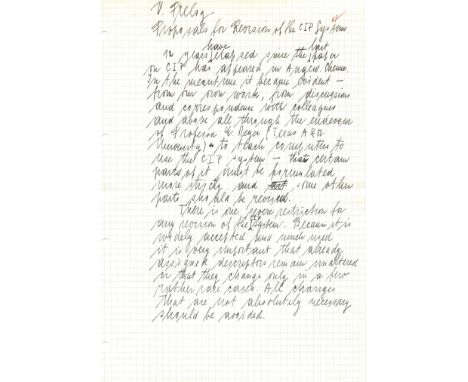 V. Prelog
Proposals for Revision of the CIP System
have last
12 years elapsed since the paper
on CIP has appeared in Angew. Chemie.
In the meantime it became evident –
from our own work, from discussions
and correspondence with colleagues
and above all through the endeavor
of Professor E. Meyer (Texas A & M
University) – to teach computers to
use the CIP system – that certain
parts of it must be formulated
more strictly and some other
parts should be revised.
There is one severe restriction for
any revision of the CIP system. Because it is
widely accepted and much used
it is very important that already
assigned descriptors remain unaltered
or that they change only in a few
rather rare cases. All changes
that are not absolutely necessary
should be avoided.